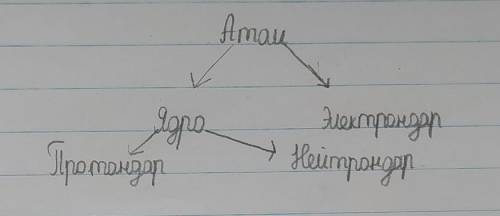 Атом
Ядро Электрондар
Протондар Нейтрондар